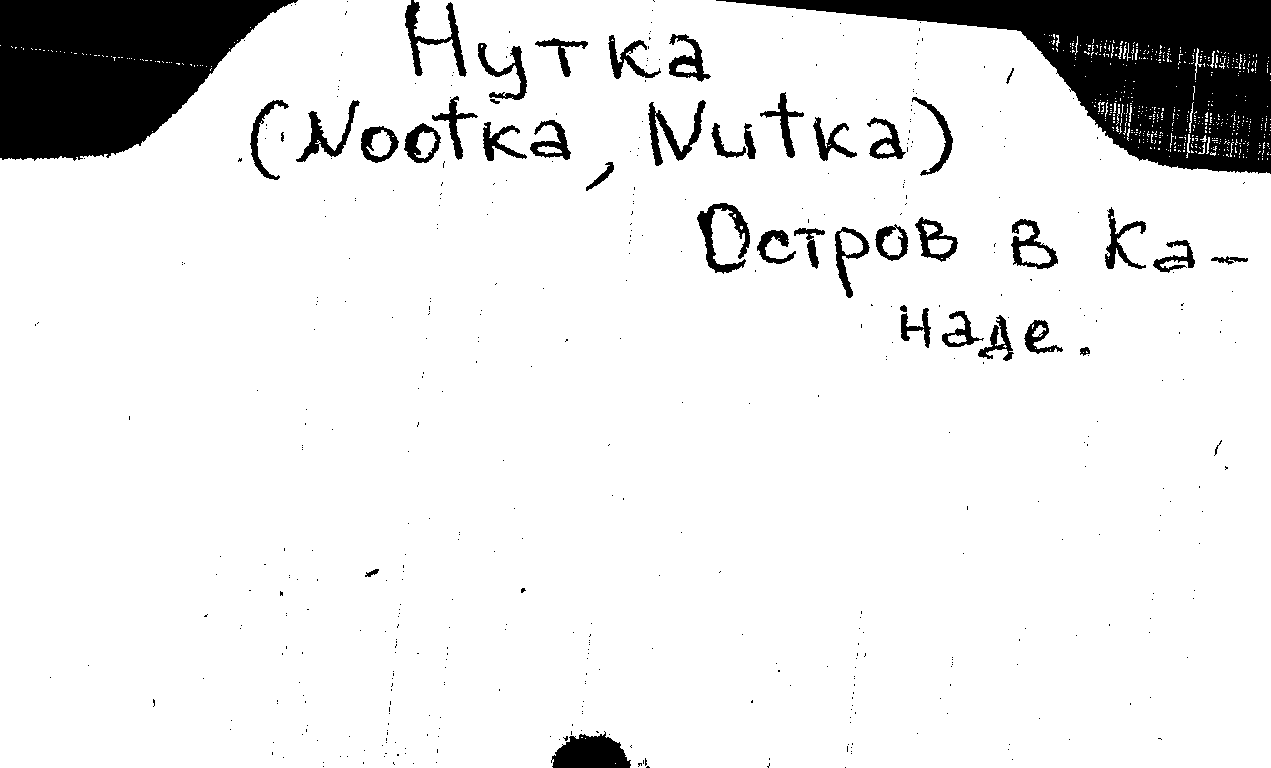 Нутка
(Nootka, Nutka)
Остров в Ка-
наде.